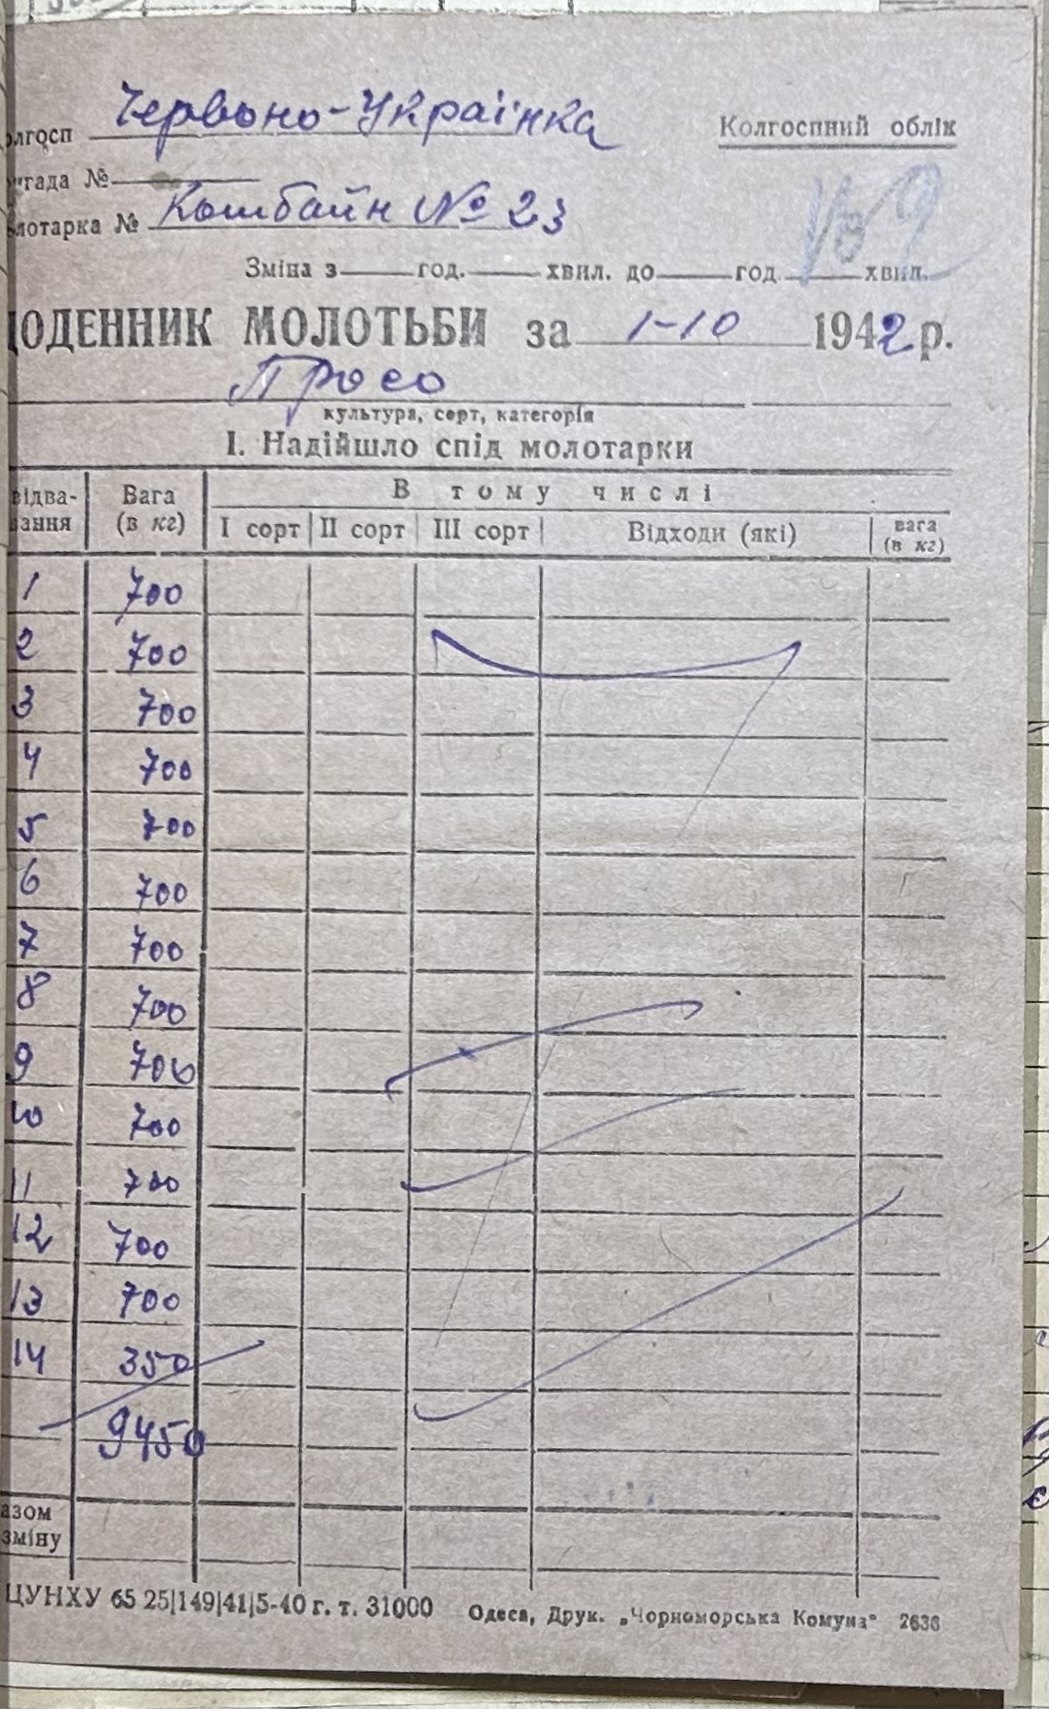 олгосп Червоно-Українка
Колгоспний облік
игада №
№ 2
лотарка № Комбайн № 23
Зміна з год. хвил. до год. хвил.
ЩОДЕННИК МОЛОТЬБИ за 1-10 1942 р.
Просо
культура, сорт, категорія
I. Надійшло спід молотарки
відва-
вання
Вага
(в кг)
В тому числі
I сорт II сорт III сорт Відходи (які) вага
(в кг)
1 700
2 700
3 700
4 700
5 700
6 700
7 700
8 700
9 700
10 700
11 700
12 700
13 700
14 350
9450
азом
зміну
ЦУНХУ 65 25|149|41|5-40 г. т. 31000 Одеса, Друк. „Чорноморська Комуна" 2636